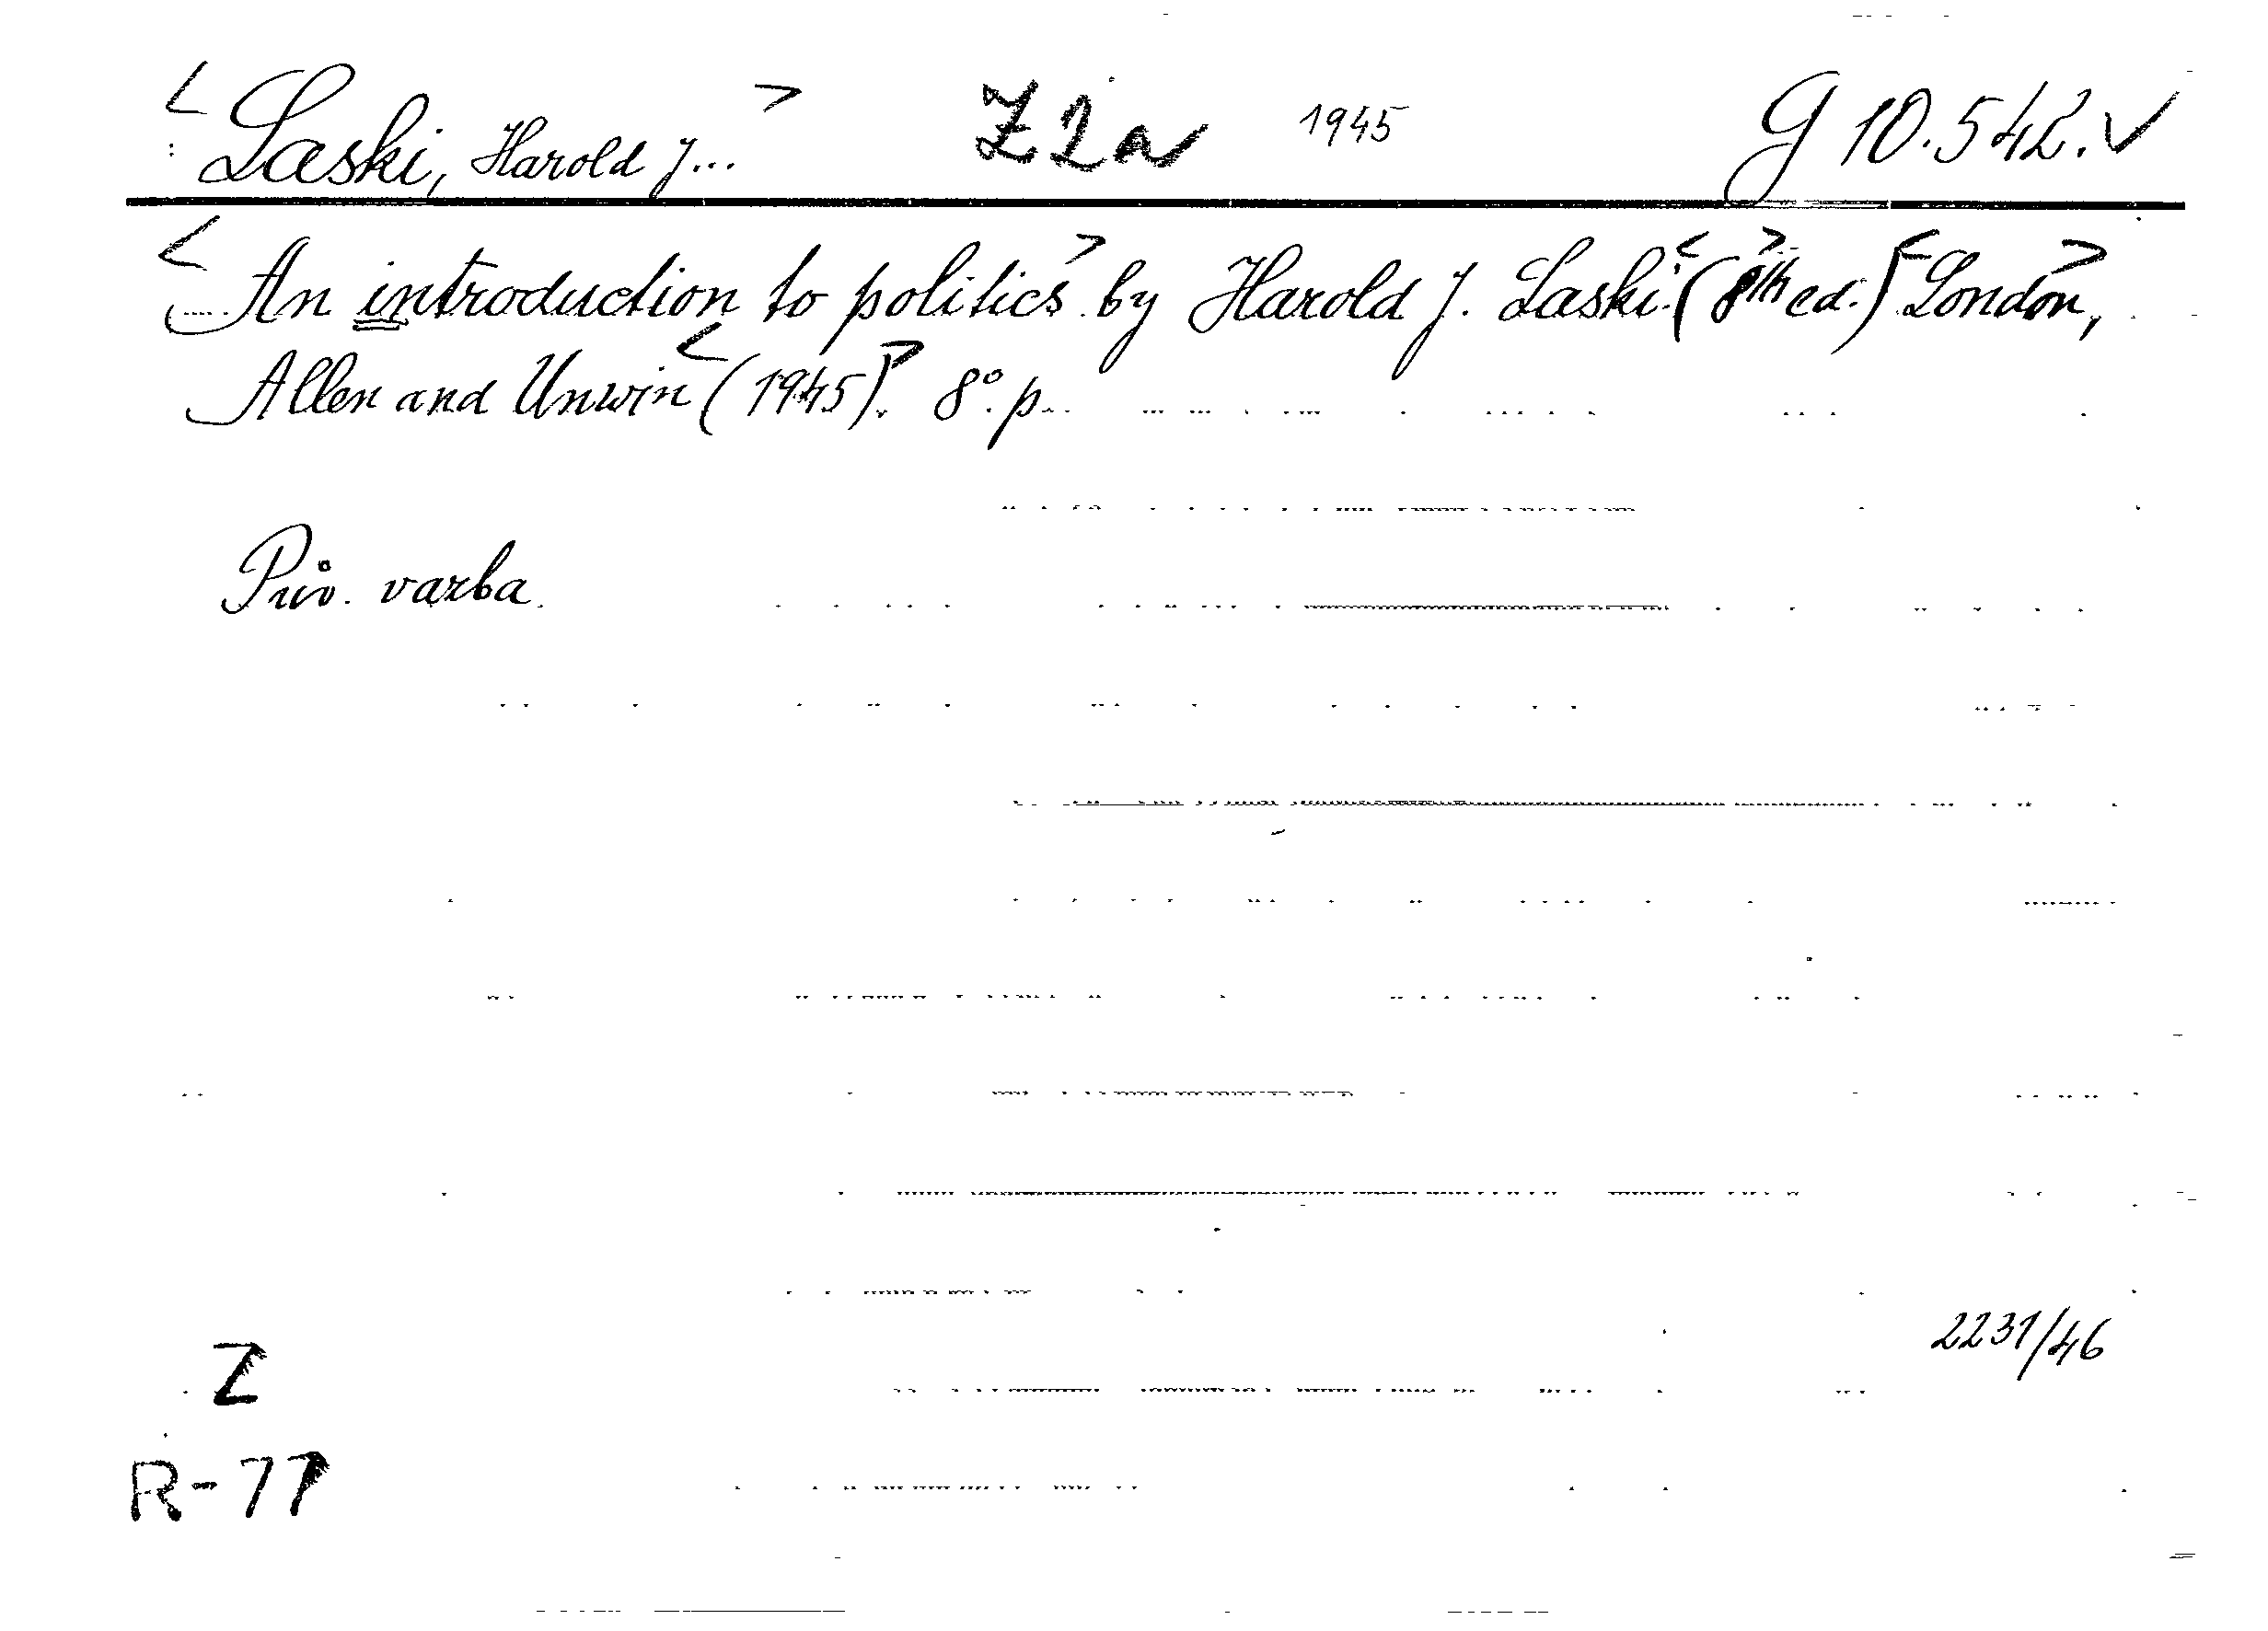 < Laski, Harold J... > Z 2 a 1945 G 10.542. ✓
< An introduction to politics > by Harold J. Laski. < (8th > ed.) < London, >
Allen and Unwin < (1945) >. 8°. p
Ův. vazba.
2231/46
Z
R-77